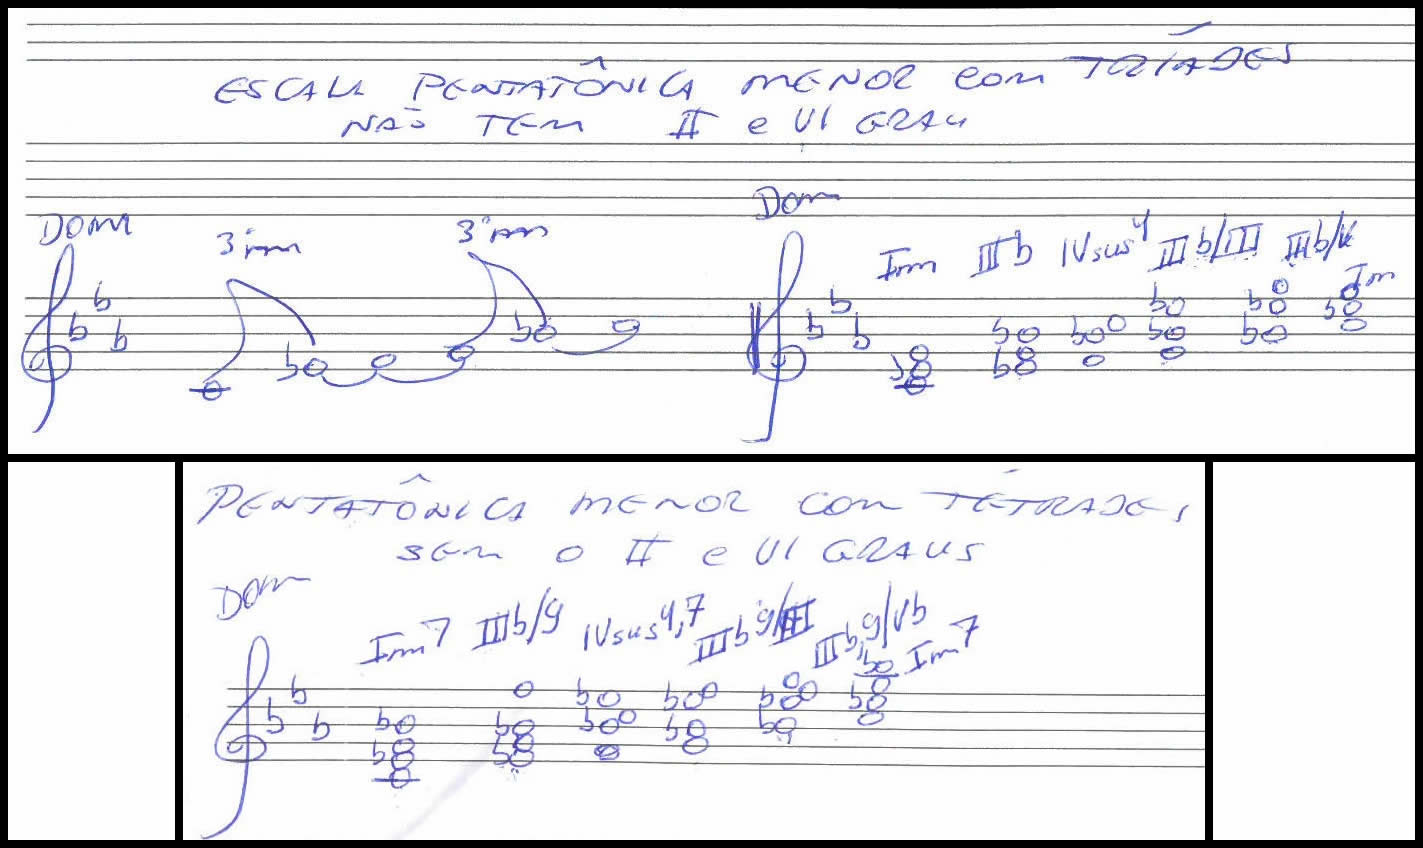 ESCALA PENTATÔNICA MENOR COM TRÍADES
NÃO TEM II e VI GRAU
Dom
3ªm
3ªm
Dom
Im IIIb IVsus4 IIIb/III IIIb/V Im
PENTATÔNICA MENOR COM TÉTRADES
SEM O II e VI GRAUS
Dom
Im7 IIIb/9 IVsus4,7 IIIb,9/Vb Im7